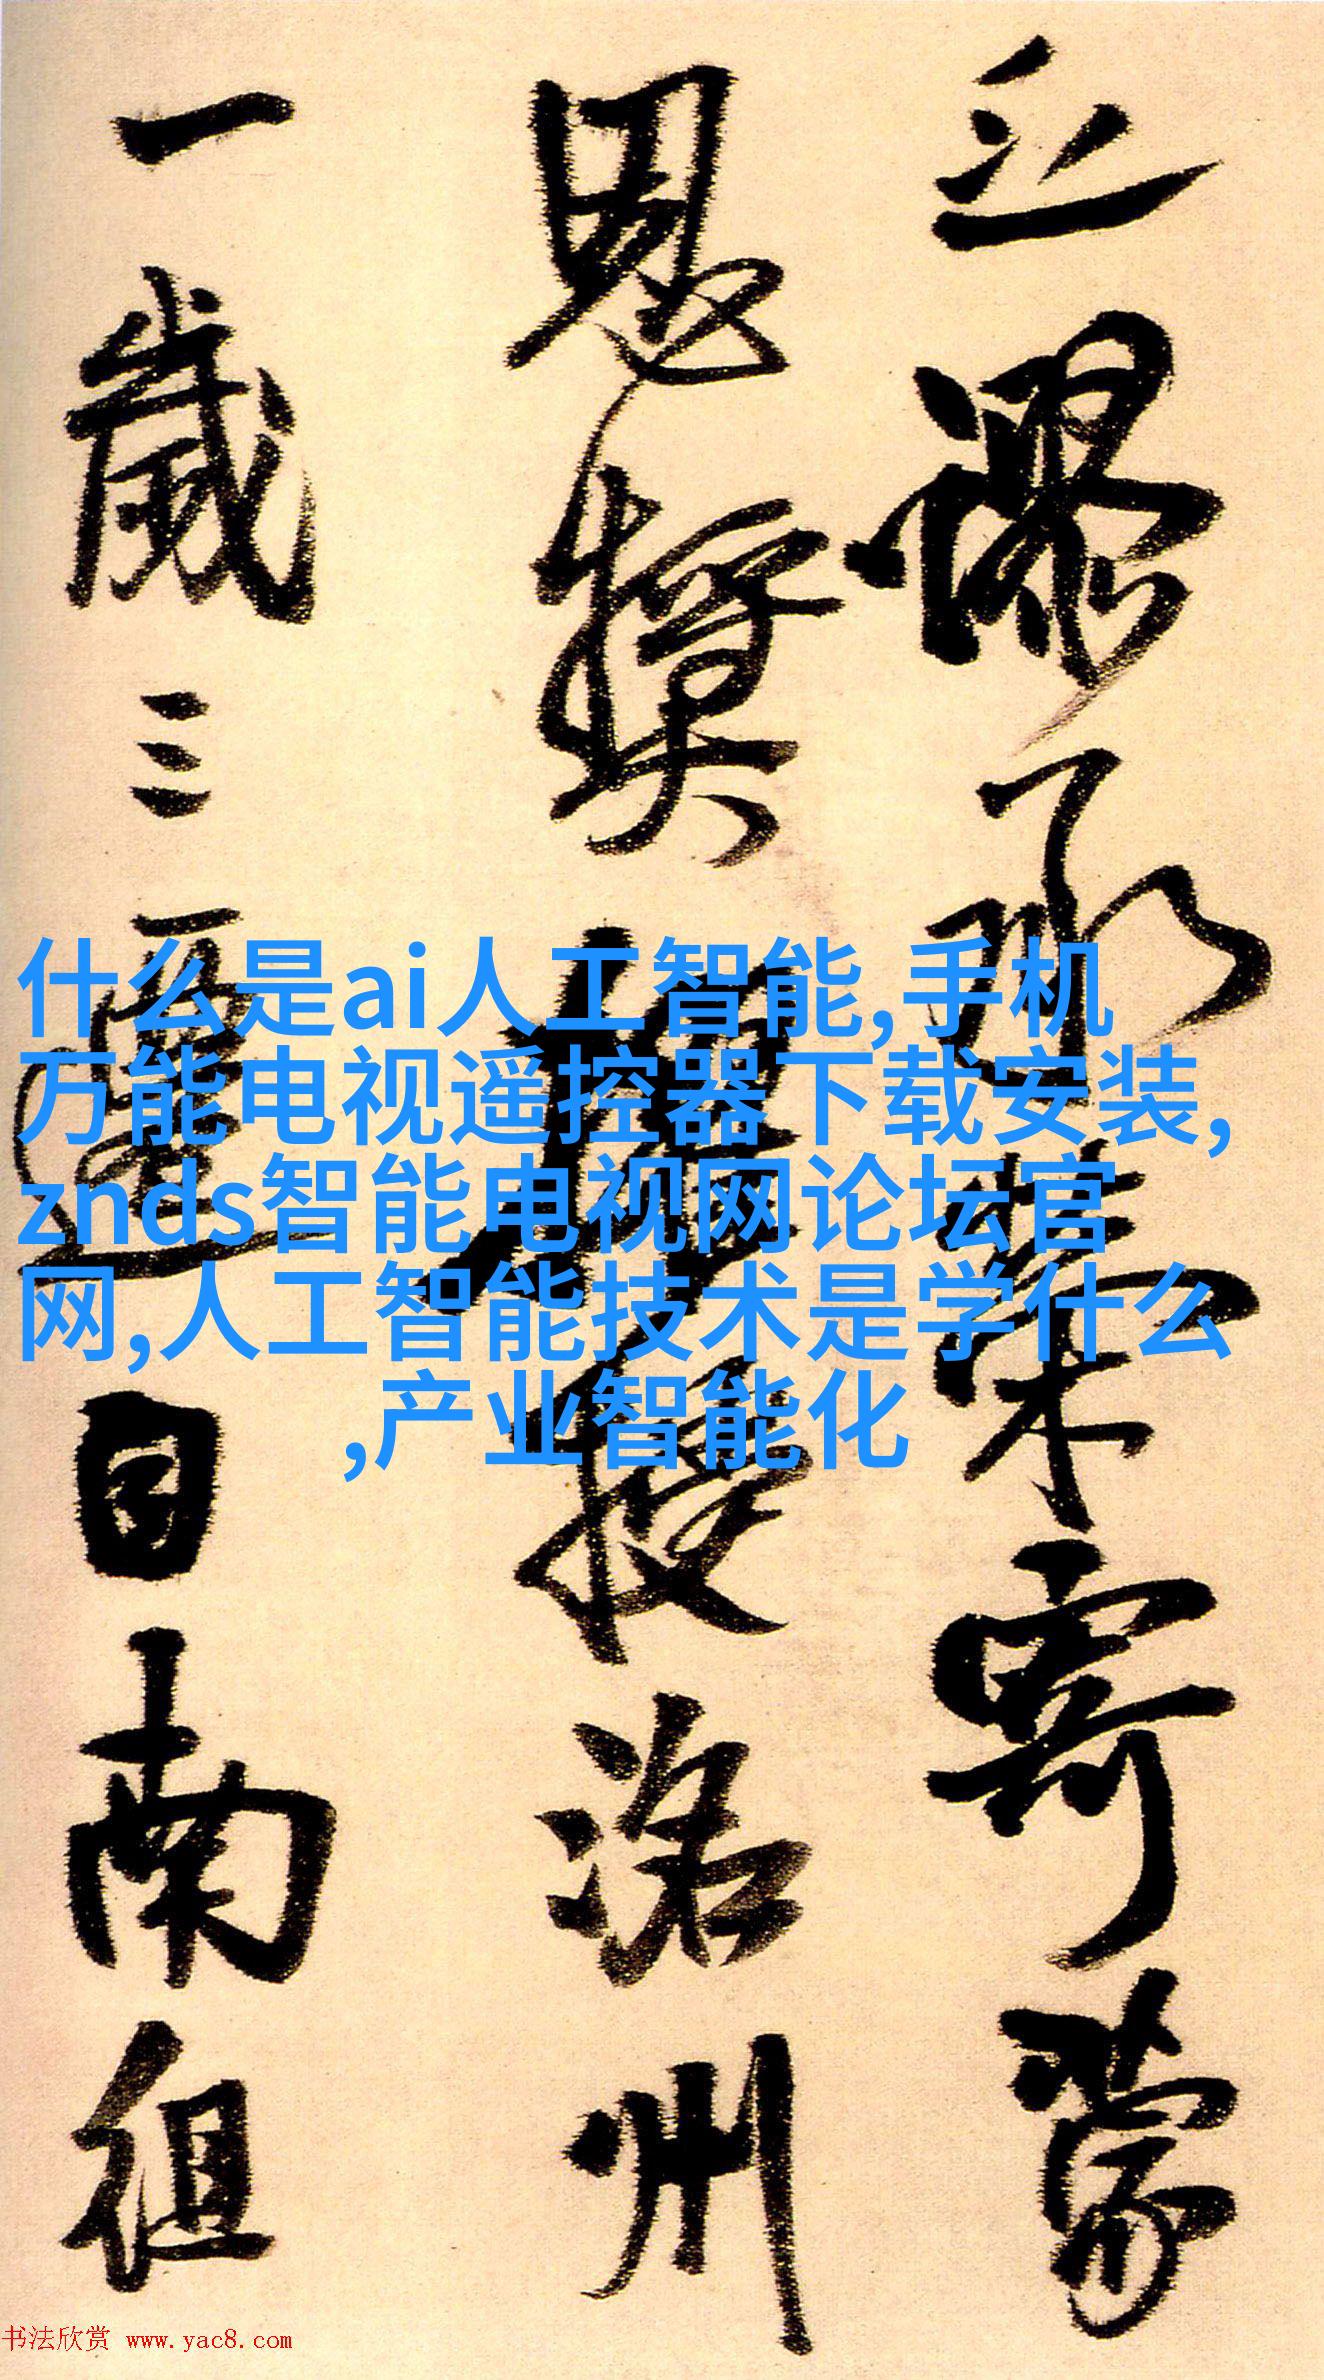 謬承榮寄蒙
恩獎擢授洛州
一歲三遷自南徂
什么是ai人工智能,手机
万能电视遥控器下载安装,
znds智能电视网论坛官
网,人工智能技术是学什么
,产业智能化
书法欣赏 www.yac8.com